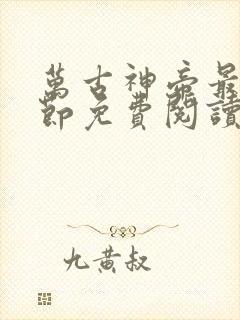 萬古神帝最
節免費閱讀
九黃叔